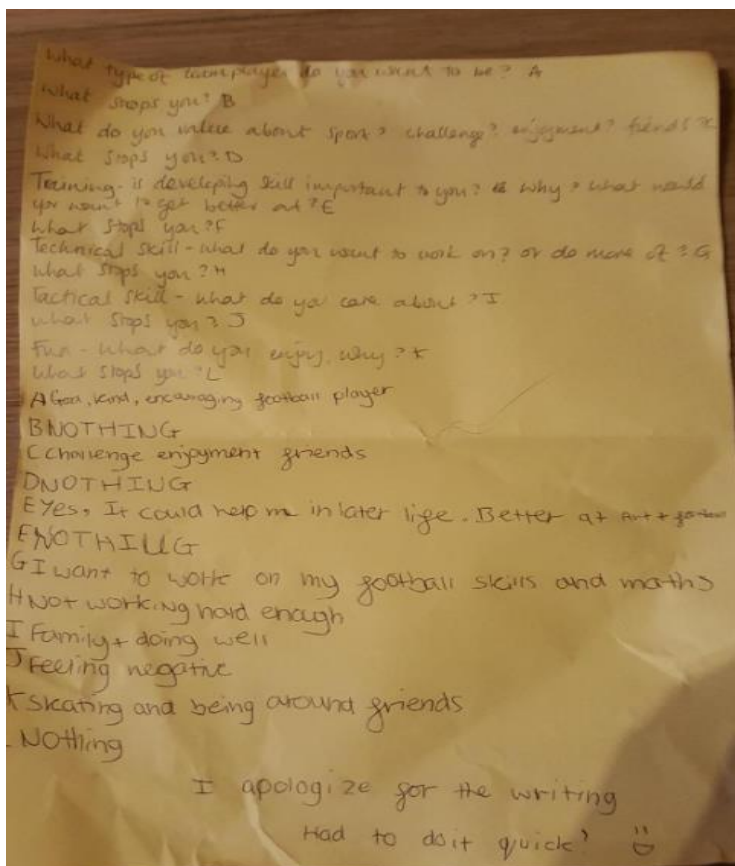 What type of team player do you want to be? A
What stops you? B
What do you value about sport? challenge? enjoyment? friends? C
What stops you? D
Training - is developing skill important to you? Why? What would
you want to get better at? E
What stops you? F
Technical Skill - what do you want to work on? or do more of? G
What stops you? H
Tactical Skill - what do you care about? I
What stops you? J
Fun - What do you enjoy, why? K
What stops you? L
A Good, kind, encouraging football player
B NOTHING
C Challenge enjoyment friends
D NOTHING
E Yes, It could help me in later life. Better at Art + football
F NOTHING
G I want to work on my football skills and maths
H Not working hard enough
I Family + doing well
J Feeling negative
K Skating and being around friends
Nothing
I apologize for the writing
Had to do it quick!